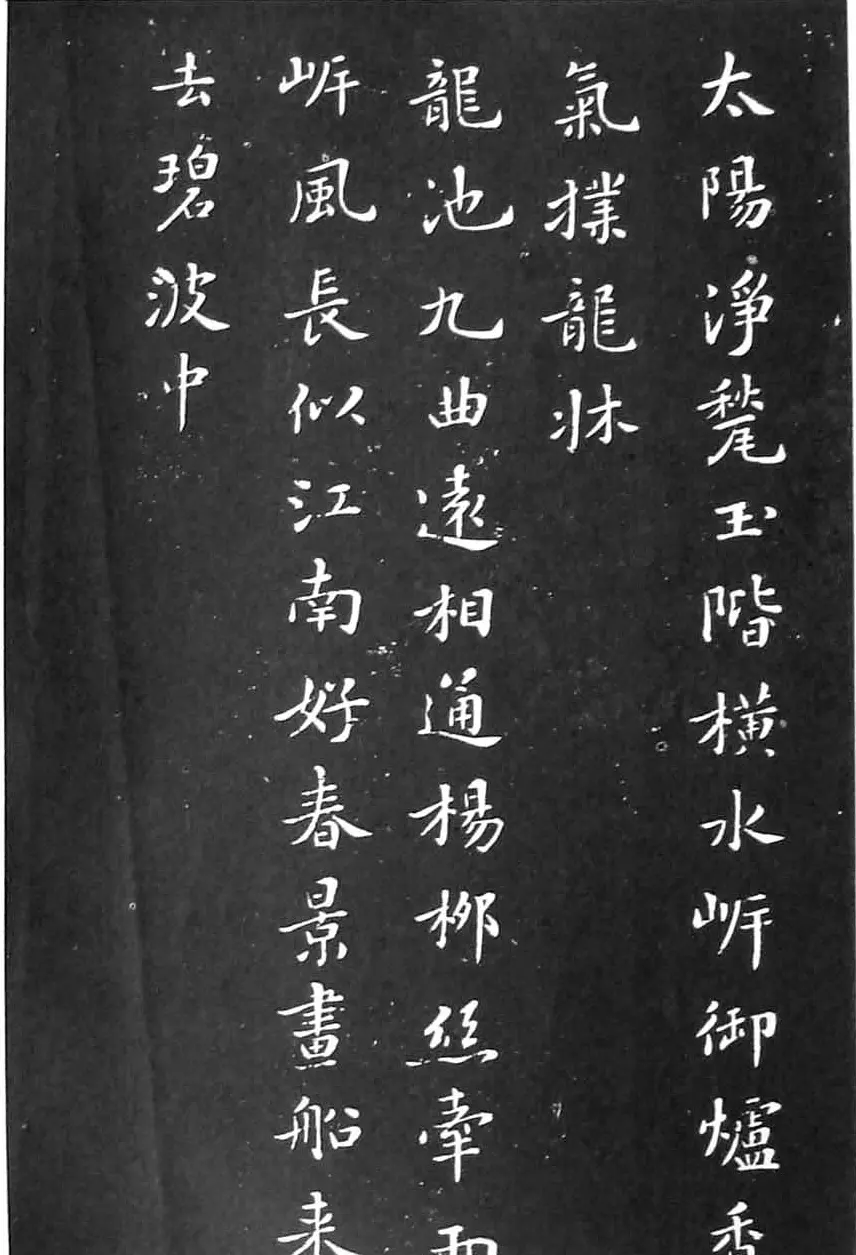 太陽淨甃玉階橫水岍御爐香
氣撲龍牀
龍池九曲遠相通楊栁絲牽兩
岍風長似江南好春景畫船来
去碧波中